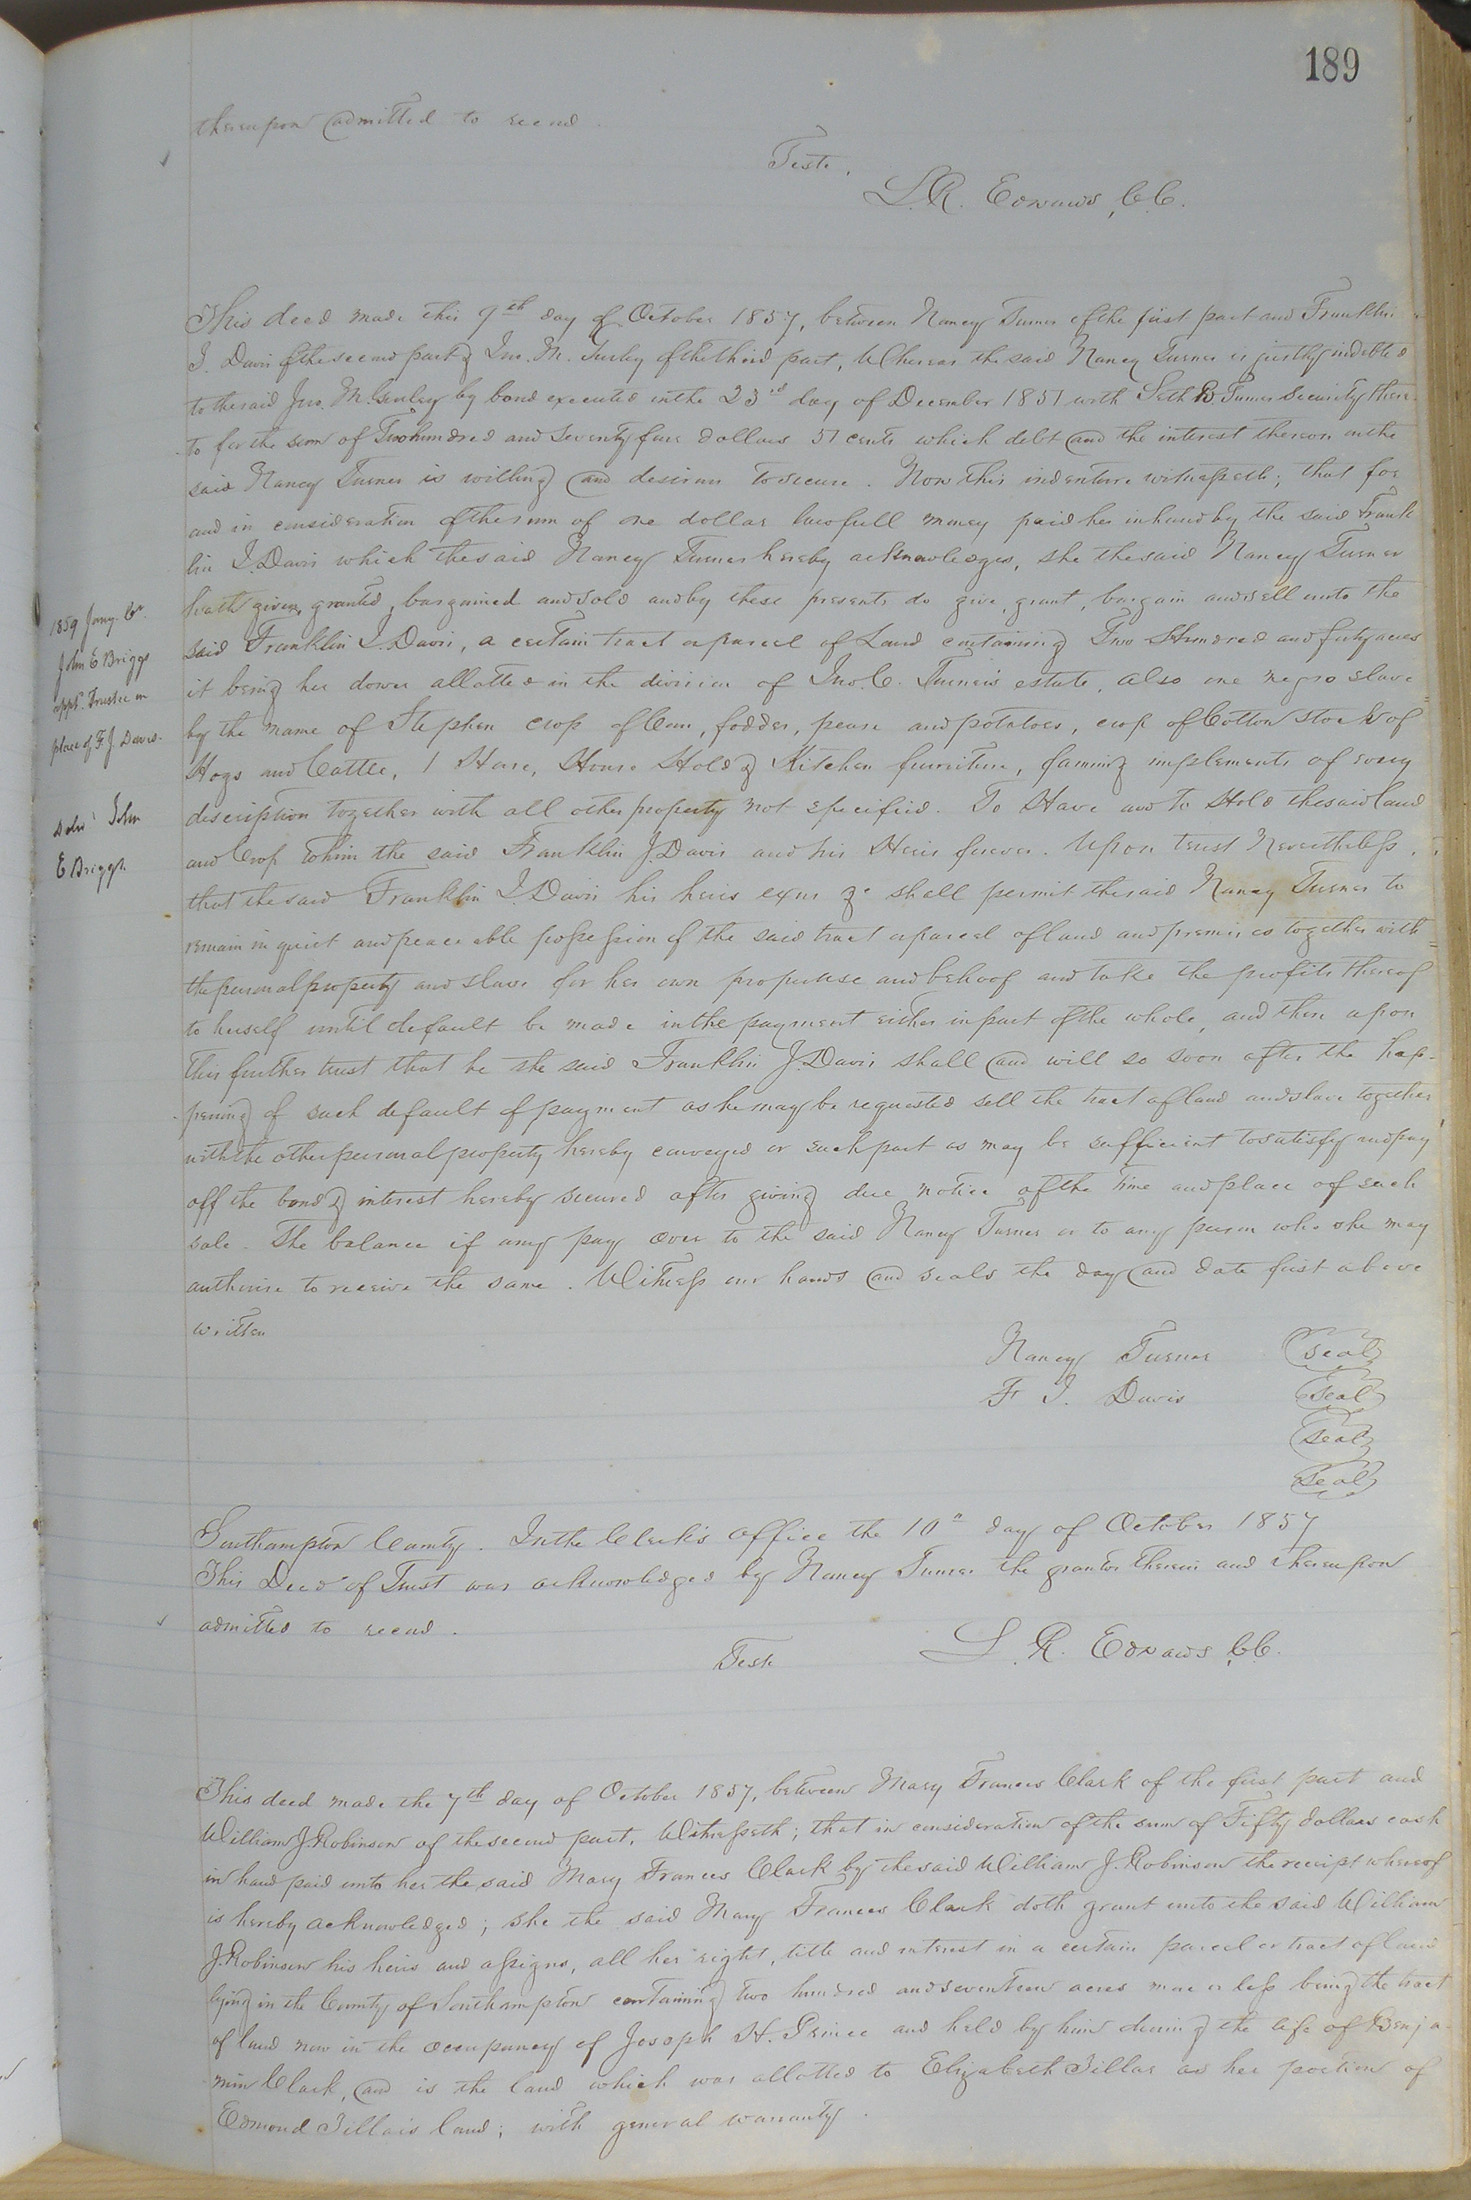 189
thereupon admitted to record.
Teste,
L. R. Edwards, C.C.
This deed made this 9th day of October 1857, between Nancy Turner of the first part and Franklin
J. Davis of the second part & Jno. M. Gurley of the third part, Whereas the said Nancy Turner is justly indebted
to the said Jno. M. Gurley by bond executed in the 23rd day of December 1851 with Seth B. Turner Security there-
to for the sum of Two hundred and Seventy four dollars 51 cents which debt and the interest thereon on the
said Nancy Turner is willing and desirous to secure. Now this indenture witnesseth; that for
and in consideration of the sum of one dollar lawfull money paid her in hand by the said Frank
lin J. Davis which the said Nancy Turner hereby acknowledges, she the said Nancy Turner
hath given, granted, bargained and sold and by these presents do give, grant, bargain and sell unto the
said Franklin J. Davis, a certain tract or parcel of Land containing Two Hundred and forty acres
it being her dower allotted in the division of Jno. C. Turner's estate, also one negro slave
by the name of Stephen crop of Corn, fodder, pease and potatoes, crop of Cotton stock of
Hogs and Cattle, 1 Horse, House Hold & Kitchen furniture, farming implements of every
description together with all other property not specified. To Have and to Hold the said land
and Crop to him the said Franklin J. Davis and his Heirs forever. Upon trust Nevertheless,
that the said Franklin J. Davis his heirs exors &c shall permit the said Nancy Turner to
remain in quiet and peaceable possession of the said tract or parcel of land and premises together with
the personal property and slave for her own proper use and behoof and take the profits thereof
to herself until default be made in the payment either in part of the whole, and then upon
this further trust that he the said Franklin J. Davis shall and will so soon after the hap-
pening of such default of payment as he may be requested sell the tract of land and slave together
with the other personal property hereby conveyed or such part as may be sufficient to satisfy and pay
off the bond & interest hereby secured after giving due notice of the time and place of such
sale. The balance if any pay over to the said Nancy Turner or to any person who she may
authorise to receive the same. Witness our hands and seals the day and date first above
written
Nancy Turner (seal)
F. J. Davis (seal)
(seal)
(seal)
1859 Jany. Ct.
John E Briggs
appt. Trustee in
place of F. J. Davis.
Deld John
E Briggs.
Southampton County. In the Clerk's Office the 10" day of October 1857
This Deed of Trust was acknowledged by Nancy Turner the grantor therein and thereupon
admitted to record.
Teste
L. R. Edwards C.C.
This deed made the 7th day of October 1857, between Mary Frances Clark of the first part and
William J. Robinson of the second part, Witnesseth; that in consideration of the sum of Fifty dollars cash
in hand paid unto her the said Mary Frances Clark by the said William J. Robinson the receipt whereof
is hereby acknowledged; she the said Mary Frances Clark doth grant unto the said William
J. Robinson his heirs and assigns, all her right, title and interest in a certain parcel or tract of land
lying in the County of Southampton containing two hundred and seventeen acres more or less being the tract
of land now in the occupancy of Joseph H. Prince and held by him during the life of Benja-
min Clark, and is the land which was allotted to Elizabeth Tillar as her portion of
Edmond Tillar's land; with general warranty.